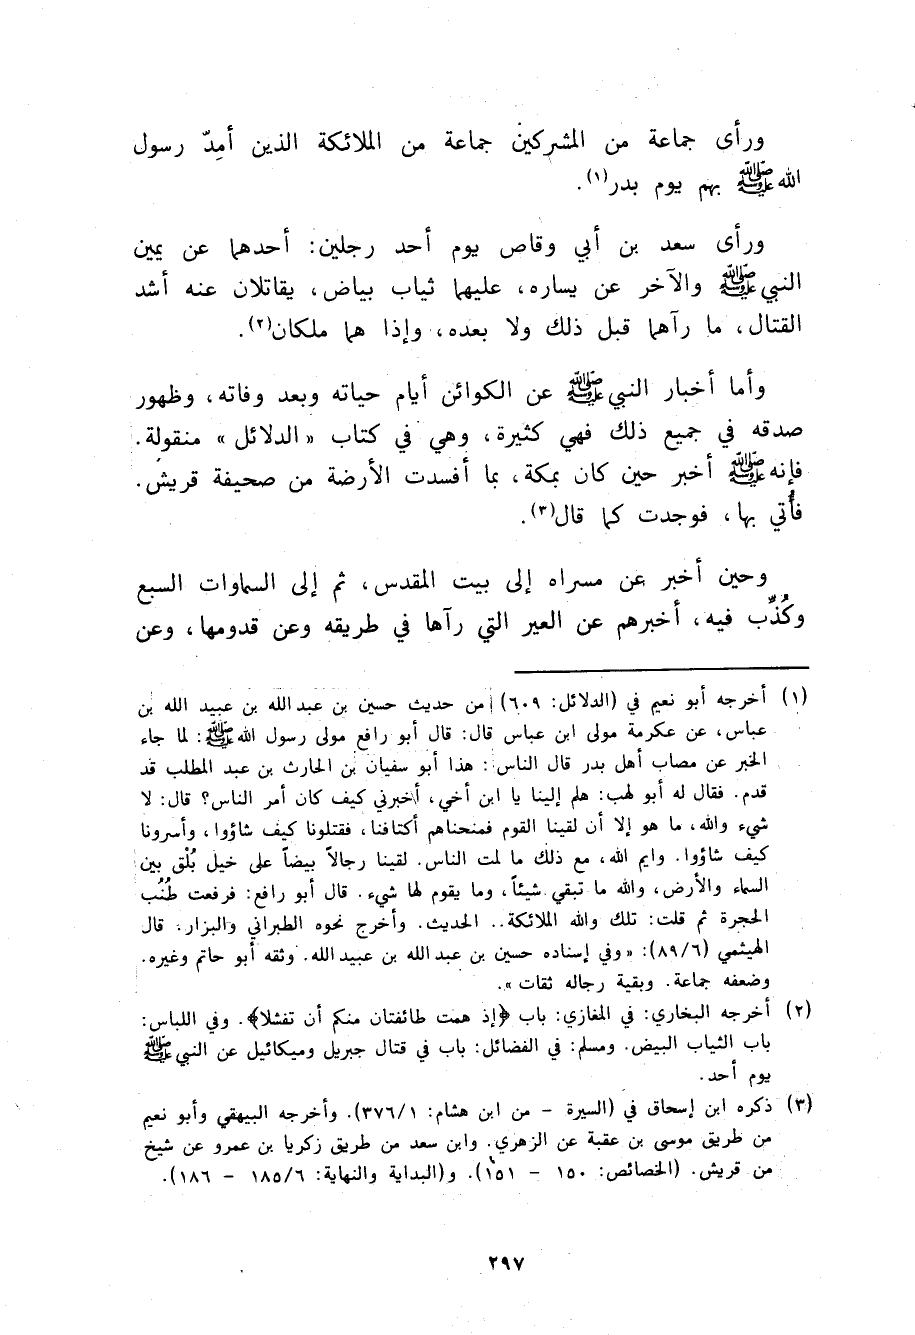 ورأى جماعة من المشركين جماعة من الملائكة الذين أمِدّ رسول
الله ﷺ بهم يوم بدر(١).
ورأى سعد بن أبي وقاص يوم أحد رجلين: أحدهما عن يمين
النبي ﷺ والآخر عن يساره، عليهما ثياب بياض، يقاتلان عنه أشد
القتال، ما رآهما قبل ذلك ولا بعده، وإذا هما ملكان(٢).
وأما أخبار النبي ﷺ عن الكوائن أيام حياته وبعد وفاته، وظهور
صدقه في جميع ذلك فهي كثيرة، وهي في كتاب «الدلائل» منقولة.
فإنه ﷺ أخبر حين كان بمكة، بما أفسدت الأرضة من صحيفة قريش.
فأُتي بها، فوجدت كما قال(٣).
وحين أخبر عن مسراه إلى بيت المقدس، ثم إلى السماوات السبع
وكُذِّب فيه، أخبرهم عن العير التي رآها في طريقه وعن قدومها، وعن
(١) أخرجه أبو نعيم في (الدلائل: ٦٠٩) من حديث حسين بن عبد الله بن عبيد الله بن
عباس، عن عكرمة مولى ابن عباس قال: قال أبو رافع مولى رسول الله ﷺ: لما جاء
الخبر عن مصاب أهل بدر قال الناس: هذا أبو سفيان بن الحارث بن عبد المطلب قد
قدم. فقال له أبو لهب: هلم إلينا يا ابن أخي، أخبرني كيف كان أمر الناس؟ قال: لا
شيء والله، ما هو إلا أن لقينا القوم فمنحناهم أكتافنا، فقتلونا كيف شاؤوا، وأسرونا
كيف شاؤوا. وايم الله، مع ذلك ما لمت الناس. لقينا رجالاً بيضاً على خيل بُلْق بين
السماء والأرض، والله ما تبقي شيئاً، وما يقوم لها شيء. قال أبو رافع: فرفعت طُنُب
الحجرة ثم قلت: تلك والله الملائكة.. الحديث. وأخرج نحوه الطبراني والبزار. قال
الهيثمي (٨٩/٦): «وفي إسناده حسين بن عبد الله بن عبيد الله. وثقه أبو حاتم وغيره.
وضعفه جماعة. وبقية رجاله ثقات».
(٢) أخرجه البخاري: في المغازي: باب ﴿إذ همت طائفتان منكم أن تفشلا﴾. وفي اللباس:
باب الثياب البيض. ومسلم: في الفضائل: باب في قتال جبريل وميكائيل عن النبي ﷺ
يوم أحد.
(٣) ذكره ابن إسحاق في (السيرة - من ابن هشام: ٣٧٦/١). وأخرجه البيهقي وأبو نعيم
من طريق موسى بن عقبة عن الزهري. وابن سعد من طريق زكريا بن عمرو عن شيخ
من قريش. (الخصائص: ١٥٠ - ١٥١). و(البداية والنهاية: ١٨٥/٦ - ١٨٦).
٢٩٧